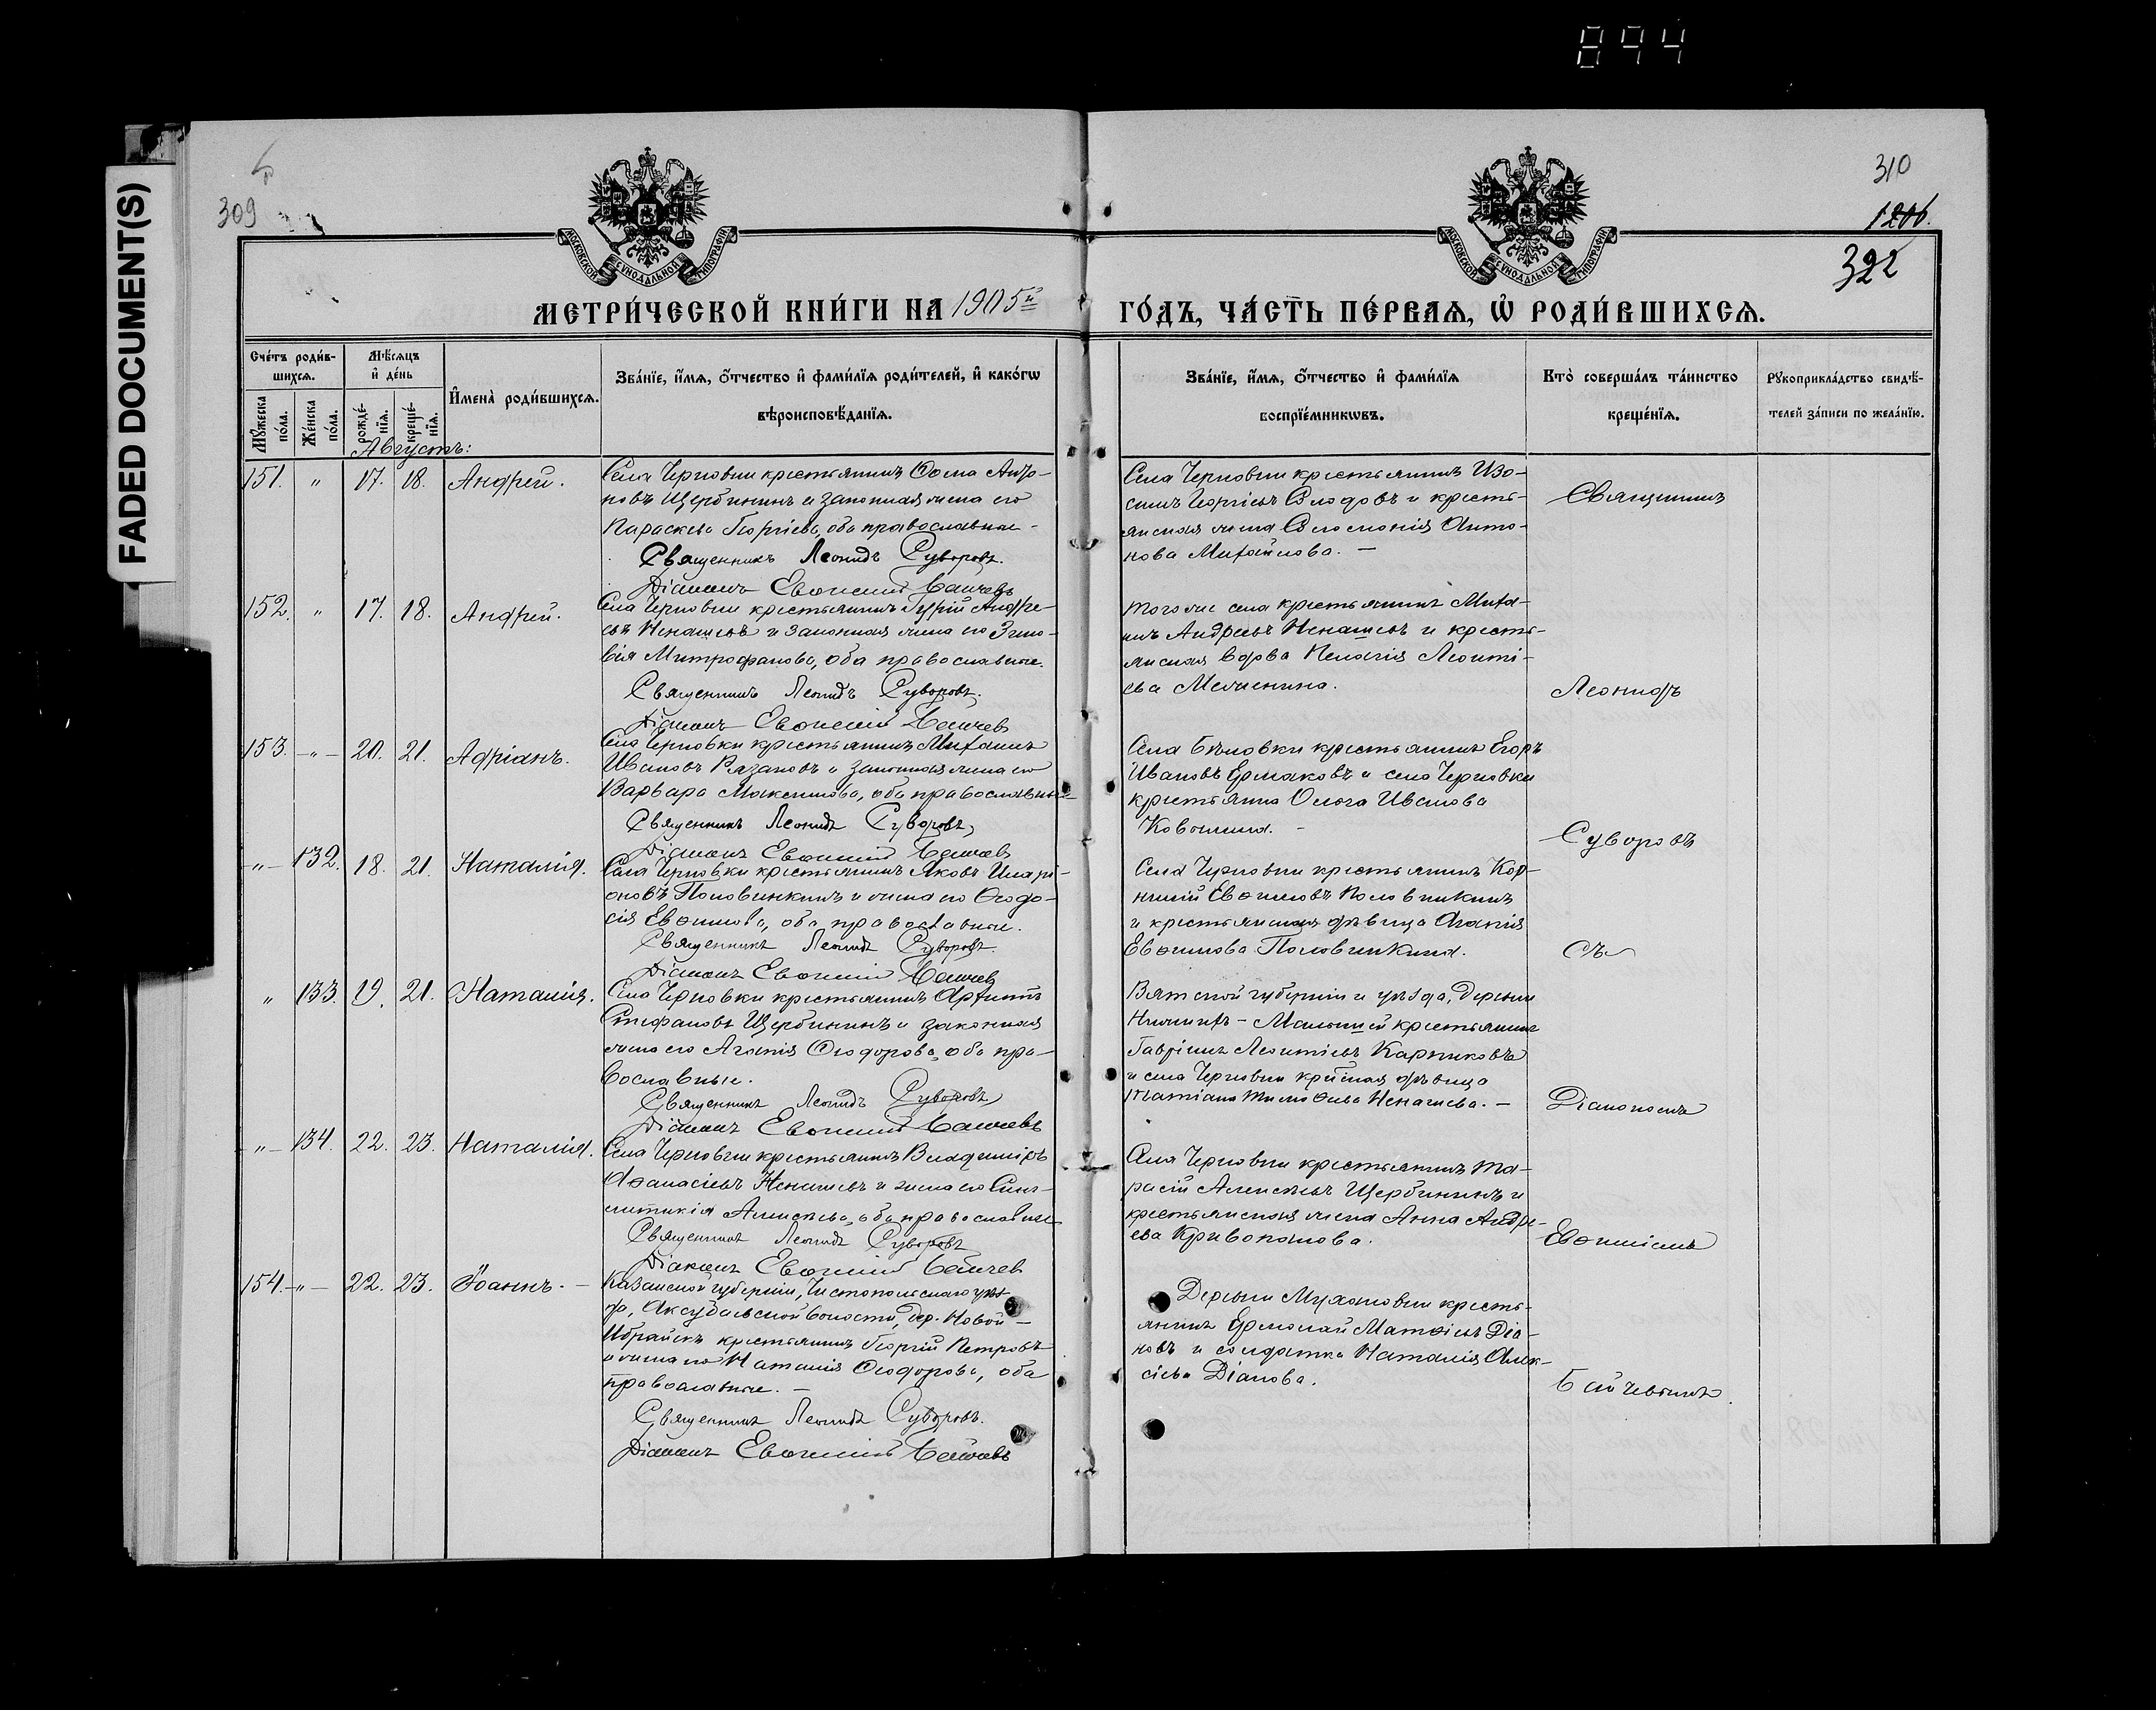 894
FADED DOCUMENT(S)
309
310
1206.
322
МОСКОВСКОЙ СѴНОДАЛЬНОЙ ТИПОГРАФІИ
МОСКОВСКОЙ СѴНОДАЛЬНОЙ ТИПОГРАФІИ
МЕТРИ́ЧЕСКОЙ КНИ́ГИ НА 1905й
ГО́ДЪ, ЧА́СТЬ ПЕ́РВАЯ, Ѡ҆ РОДИ́ВШИХСЯ.
Сче́тъ роди́в-
шихся.
Мꙋ́жеска по́ла.
Же́нска по́ла.
Мѣ́сяцъ
и҆ де́нь
рожде́-
нїя.
креще́-
нїя.
И҆мена̀ роди́вшихся.
Зва́нїе, и҆́мя, ѻ҆́тчество и҆ фами́лїя роди́телей, и҆ како́гѡ
вѣроисповѣ́данїя.
Зва́нїе, и҆́мя, ѻ҆́тчество и҆ фами́лїя
воспрїе́мникѡвъ.
Кто̀ соверша́лъ та́инство
креще́нїя.
Рꙋкоприкла́дство свидѣ́-
телей за́писи по жела́нїю.
Августъ:
151. " 17. 18. Андрей.
Села Черновки крестьянинъ Ѳома Анто-
новъ Щербининъ и законная жена его
Параскева Георгіева, оба православные
Священникъ Леонидъ Суворовъ.
Діаконъ Евѳимій Байчевъ
Села Черновки крестьянинъ Изо-
симъ Георгіевъ Солодовъ и кресть-
янская жена Соломонія Анто-
нова Михайлова. —
Священникъ
152. " 17. 18. Андрей.
Села Черновки крестьянинъ Гурій Андре-
евъ Ненашевъ и законная жена его Зино-
вія Митрофанова, оба православные.
Священникъ Леонидъ Суворовъ.
Діаконъ Евѳимій Байчевъ
Того же села крестьянинъ Миха-
илъ Андреевъ Ненашевъ и кресть-
янская вдова Пелагія Леонті-
ева
Леонидъ
153. —"— 20. 21. Адріанъ.
Села Черновки крестьянинъ Михаилъ
Ивановъ Рязановъ и законная жена его
Варвара Максимова, оба православные
Священникъ Леонидъ Суворовъ,
Діаконъ Евѳимій Байчевъ
Села Бѣловки крестьянинъ Егоръ
Ивановъ Ермаковъ и села Черновки
крестьянка Ольга Иванова
Суворовъ
—"— 132. 18. 21. Наталія.
Села Черновки крестьянинъ Яковъ Иларі-
оновъ Половинкинъ и жена его Ѳеодо-
сія Евѳимова, оба православные.
Священникъ Леонидъ Суворовъ
Діаконъ Евѳимій Байчевъ
Села Черновки крестьянинъ Кор-
нилій Евѳимовъ Половинкинъ
и крестьянская дѣвица Агапія
Евѳимова Половинкина.
съ
" 133. 19. 21. Наталія.
Села Черновки крестьянинъ Архиппъ
Стефановъ Щербининъ и законная
жена его Агапія Ѳеодорова, оба пра-
вославные.
Священникъ Леонидъ Суворовъ,
Діаконъ Евѳимій Байчевъ
Вятской губерніи и уѣзда, деревни
крестьянинъ
Гавріилъ Леонтіевъ Карпиковъ
и села Черновки дѣвица
Татіана Тимоѳеева Ненашева. —
Діакономъ
—"— 134. 22. 23. Наталія.
Села Черновки крестьянинъ Владиміръ
Аѳанасіевъ Ненашевъ и жена его Син-
клитикія Алексѣева, оба православные
Священникъ Леонидъ Суворовъ
Діаконъ Евѳимій Байчевъ
Села Черновки крестьянинъ Та-
расій Алексѣевъ Щербининъ и
крестьянская жена Анна Андре-
ева Кривопалова.
Евѳиміемъ
154. —"— 22. 23. Іоаннъ. —
Казанской губерніи, Чистопольскаго уѣз-
да, Аксубаевской волости, дер. Новой-
крестьянинъ Георгій Петровъ
и жена его Наталія Ѳеодорова, оба
православные. —
Священникъ Леонидъ Суворовъ.
Діаконъ Евѳимій Байчевъ
Деревни Мухановки кресть-
янинъ Ермолай Матѳіевъ Діа-
новъ и солдатка Наталія Алек-
сіева Діанова.
Байчевымъ.